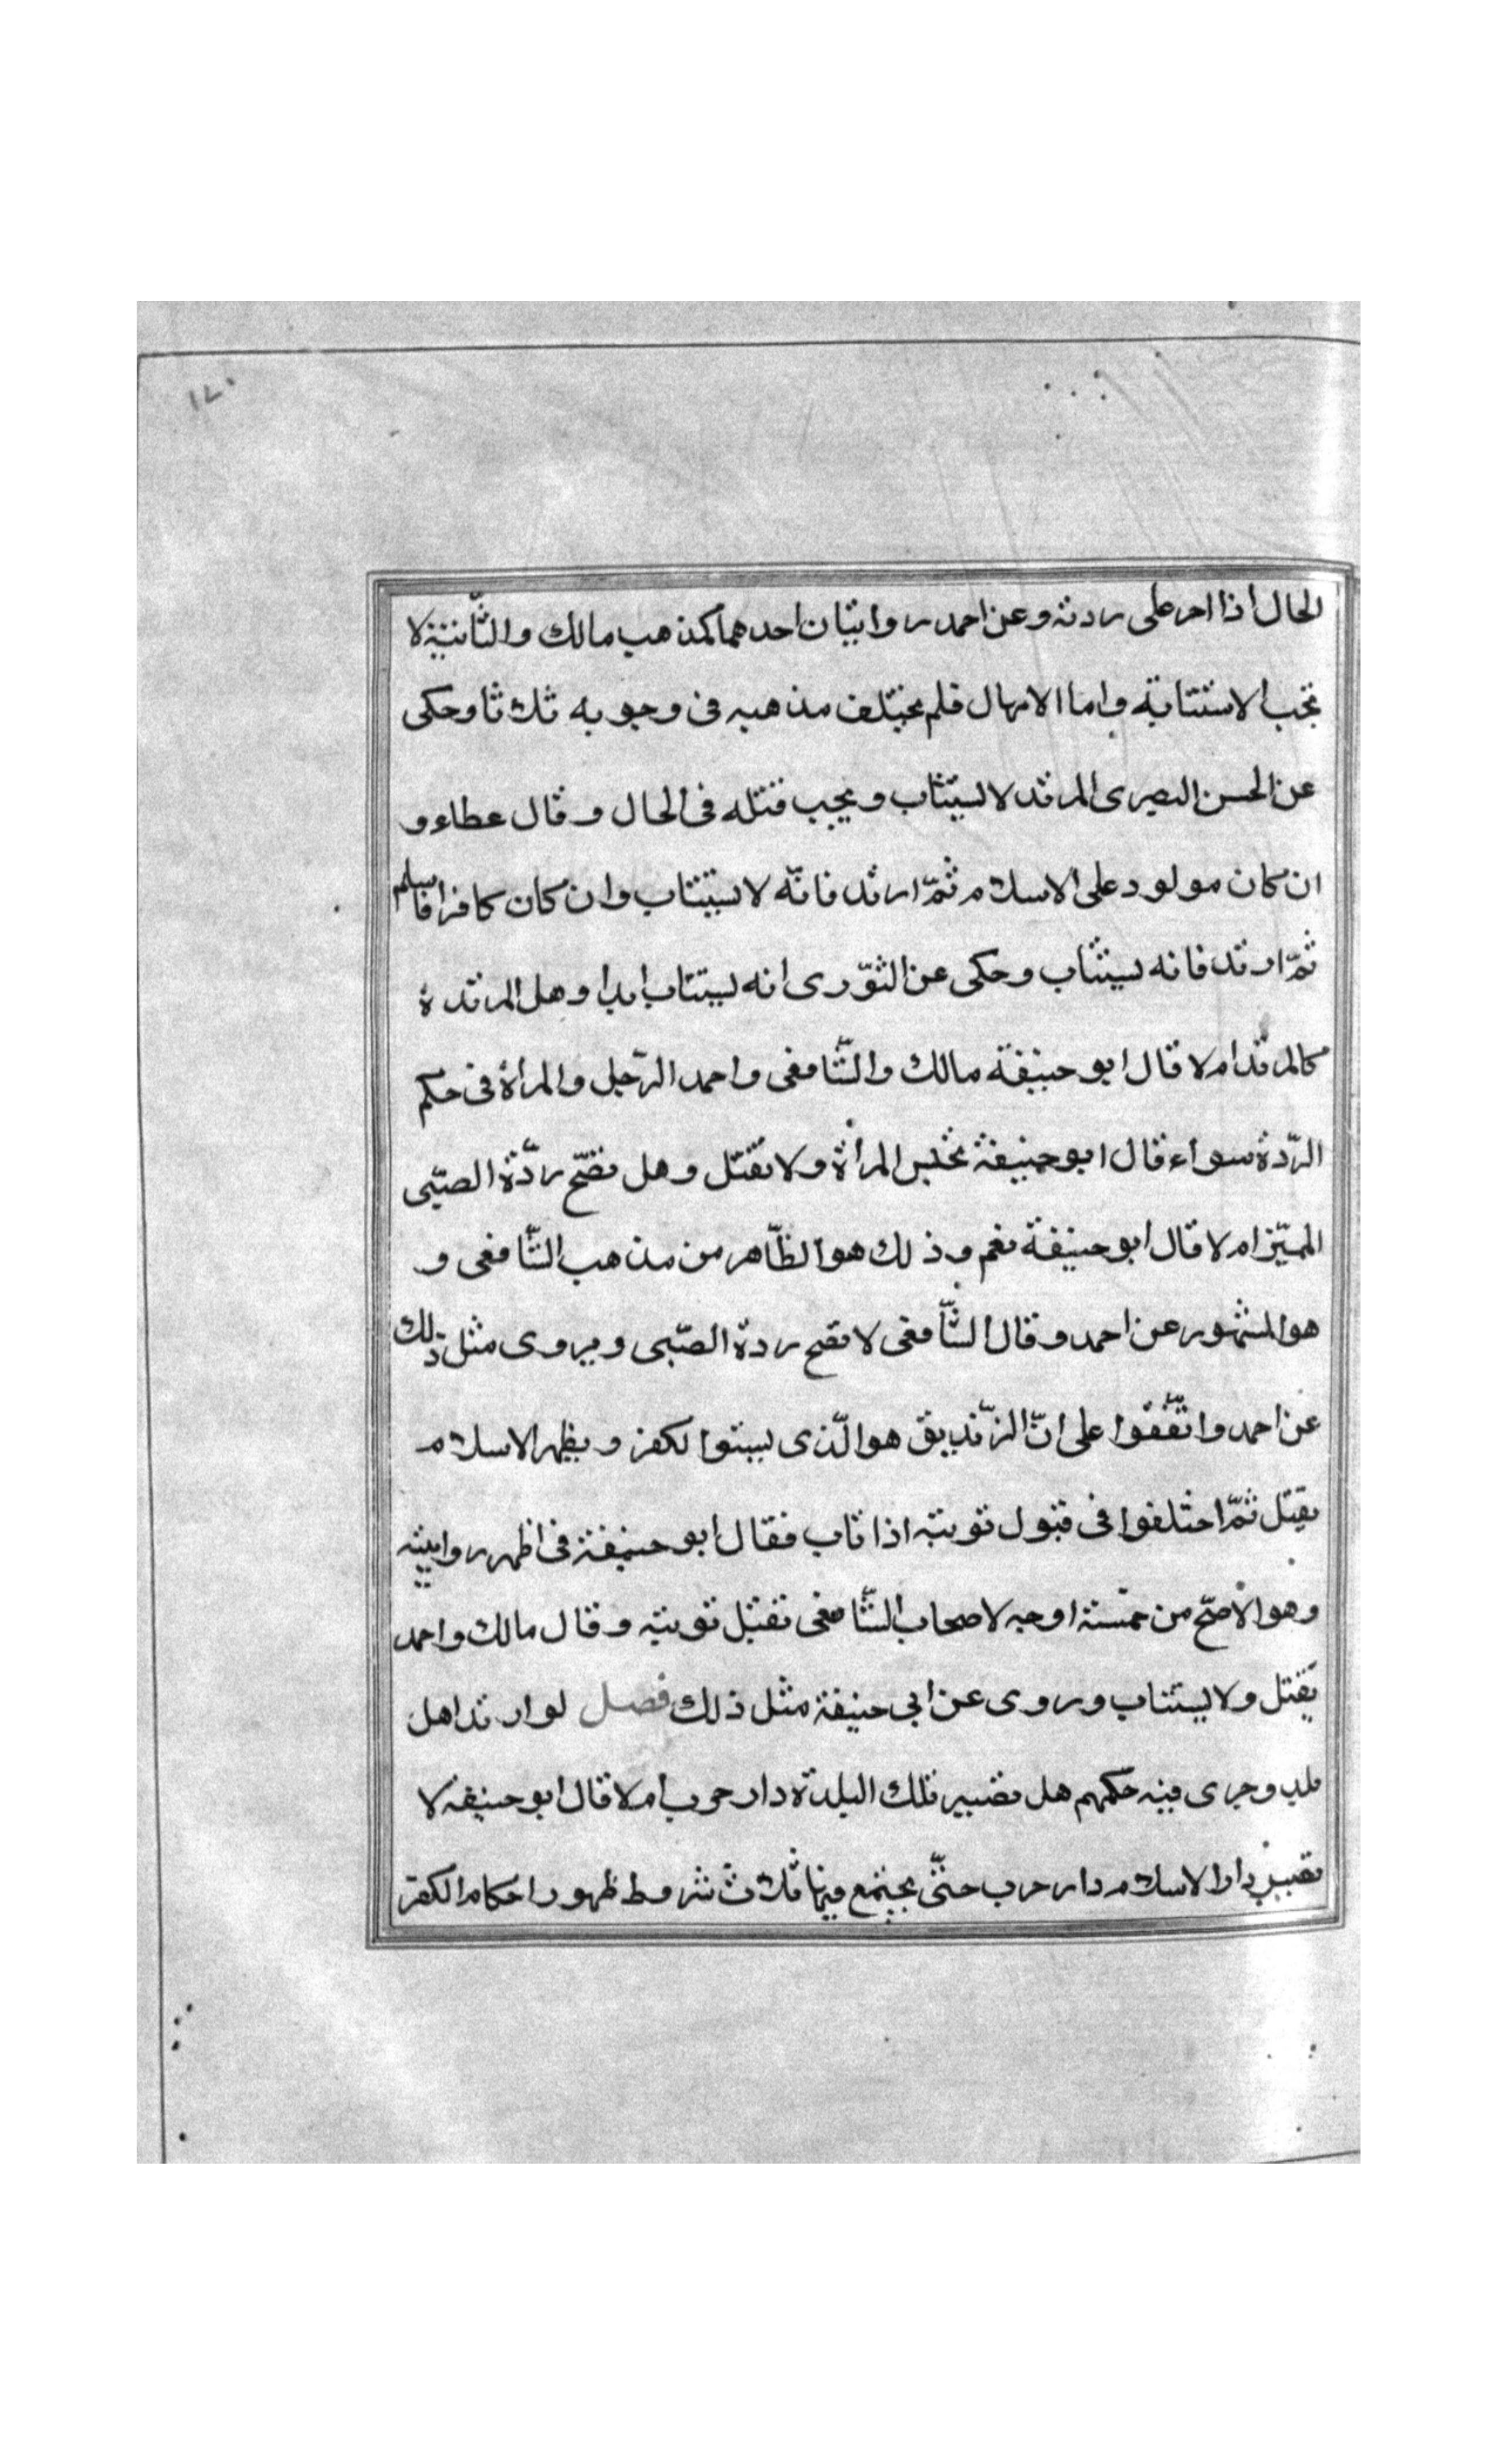 ١٧٠
الحال اذا اصر على ردته وعن احمد روايتان احدهما كمذهب مالك والثّانية لا
تجب الاستتابة واما الامهال فلم يختلف مذهبه فى وجوبه ثلاثا وحكى
عن الحسن البصرى المرتد لا يستتاب ويجب قتله فى الحال وقال عطاء و
ان كان مولود على الاسلام ثمّ ارتد فانّه لا يستتاب وان كان كافرا فاسلم
ثمّ ارتد فانه يستتاب وحكى عن الثّورى انه يستتاب ابدا وهل المرتدة
كالمرتد ام لا قال ابو حنيفة مالك والشّافعى واحمد الرّجل والمرأة فى حكم
الرّدة سواء قال ابو حنيفة تحبس المرأة ولا تقتل وهل تصّح ردّة الصبّى
المميّز ام لا قال ابو حنيفة نعم وذلك هو الظّاهر من مذهب الشّافعى و
هو المشهور عن احمد وقال الشّافعى لا تصح ردة الصّبى ويروى مثل ذلك
عن احمد واتّفقوا على انّ الزّنديق هو الّذى يستوا لكفر ويظهر الاسلام
يقتل ثمّ اختلفوا فى قبول توبته اذا تاب فقال ابو حنيفة فى اظهر روايته
وهو الاصّح من خمسة اوجه لاصحاب الشّافعى تقبل توبته وقال مالك واحمد
يقتل ولا يستتاب وروى عن ابى حنيفة مثل ذلك فصل لو ارتد اهل
بلد وجرى فيه حكمهم هل تصير تلك البلدة دار حرب ام لا قال ابو حنيفه لا
تصير دار الاسلام دار حرب حتّى يجتمع فيها ثلاث شروط ظهور احكام الكفر